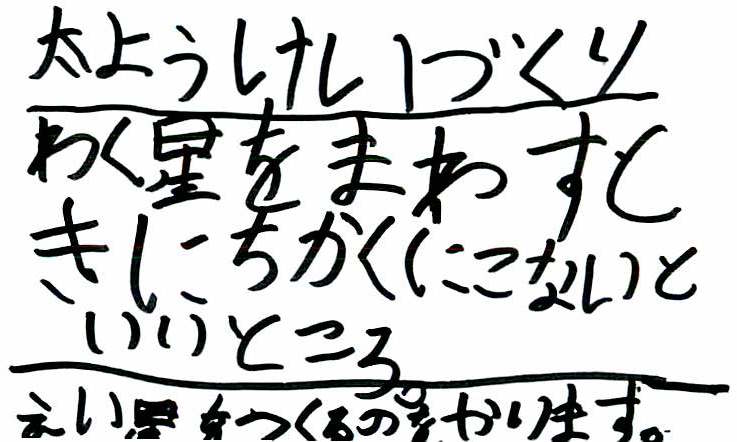 太ようけいづくり
わく星をまわすと
きにちかくにこないと
いいところ。
えい星をつくるの かります。